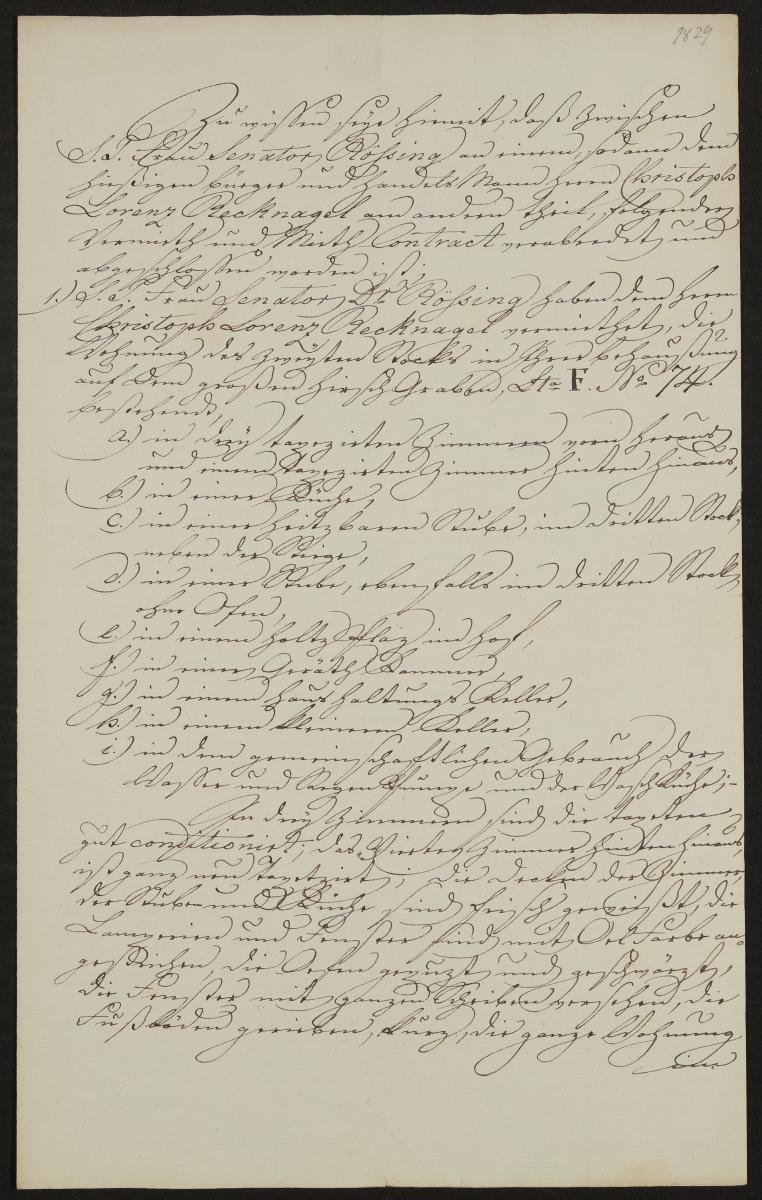 1829
Zu wissen seye hiermit, daß zwischen
S. T. Frau Senator Rössing an einem, sodann dem
hießigen Bürger und Handels Mann Herrn Christoph
Lorenz Recknagel am andern Theil, folgender
Vermieth und Mieth Contract verabredet und
abgeschlossen worden ist;
1.) S. T. Frau Senator Dr. Rössing haben dem Herrn
Christoph Lorenz Recknagel vermiethet, die
Wohnung des zweyten Stocks in Ihrer Behaußung
auf dem großen Hirsch Graben, Lta F. No 74.
bestehend,
a.) in drey tapezirten Zimmern vorn heraus,
und einem tapezirten Zimmer hinten hinaus,
b.) in einer Küche,
c.) in einer heitzbaren Stube, im dritten Stock,
neben der Stiege,
d.) in einer Stube, ebenfalls im dritten Stock,
ohne Ofen,
e.) in einem Holtz Platz im Hof,
f.) in einer Geräth Kammer,
g.) in einem Haushaltungs Keller,
h.) in einem kleineren Keller,
i.) in dem gemeinschaftlichen Gebrauch der
Wasser und Regen Pumpe und der Waschküche;-
In drey Zimmern sind die Tapeten
gut conditionirt; das Vierte Zimmer hinten hinaus,
ist ganz neu Tapetzirt; die Decken der Zimmer,
der Stuben und Küche sind frisch geweißt, die
Lamperien und Fenster sind mit Oel Farbe an-
gestrichen, die Oefen geputzt und geschwärzt,
die Fenster mit ganzen Scheiben versehen, die
Fußböden gerieben, kurz, die ganze Wohnung
im